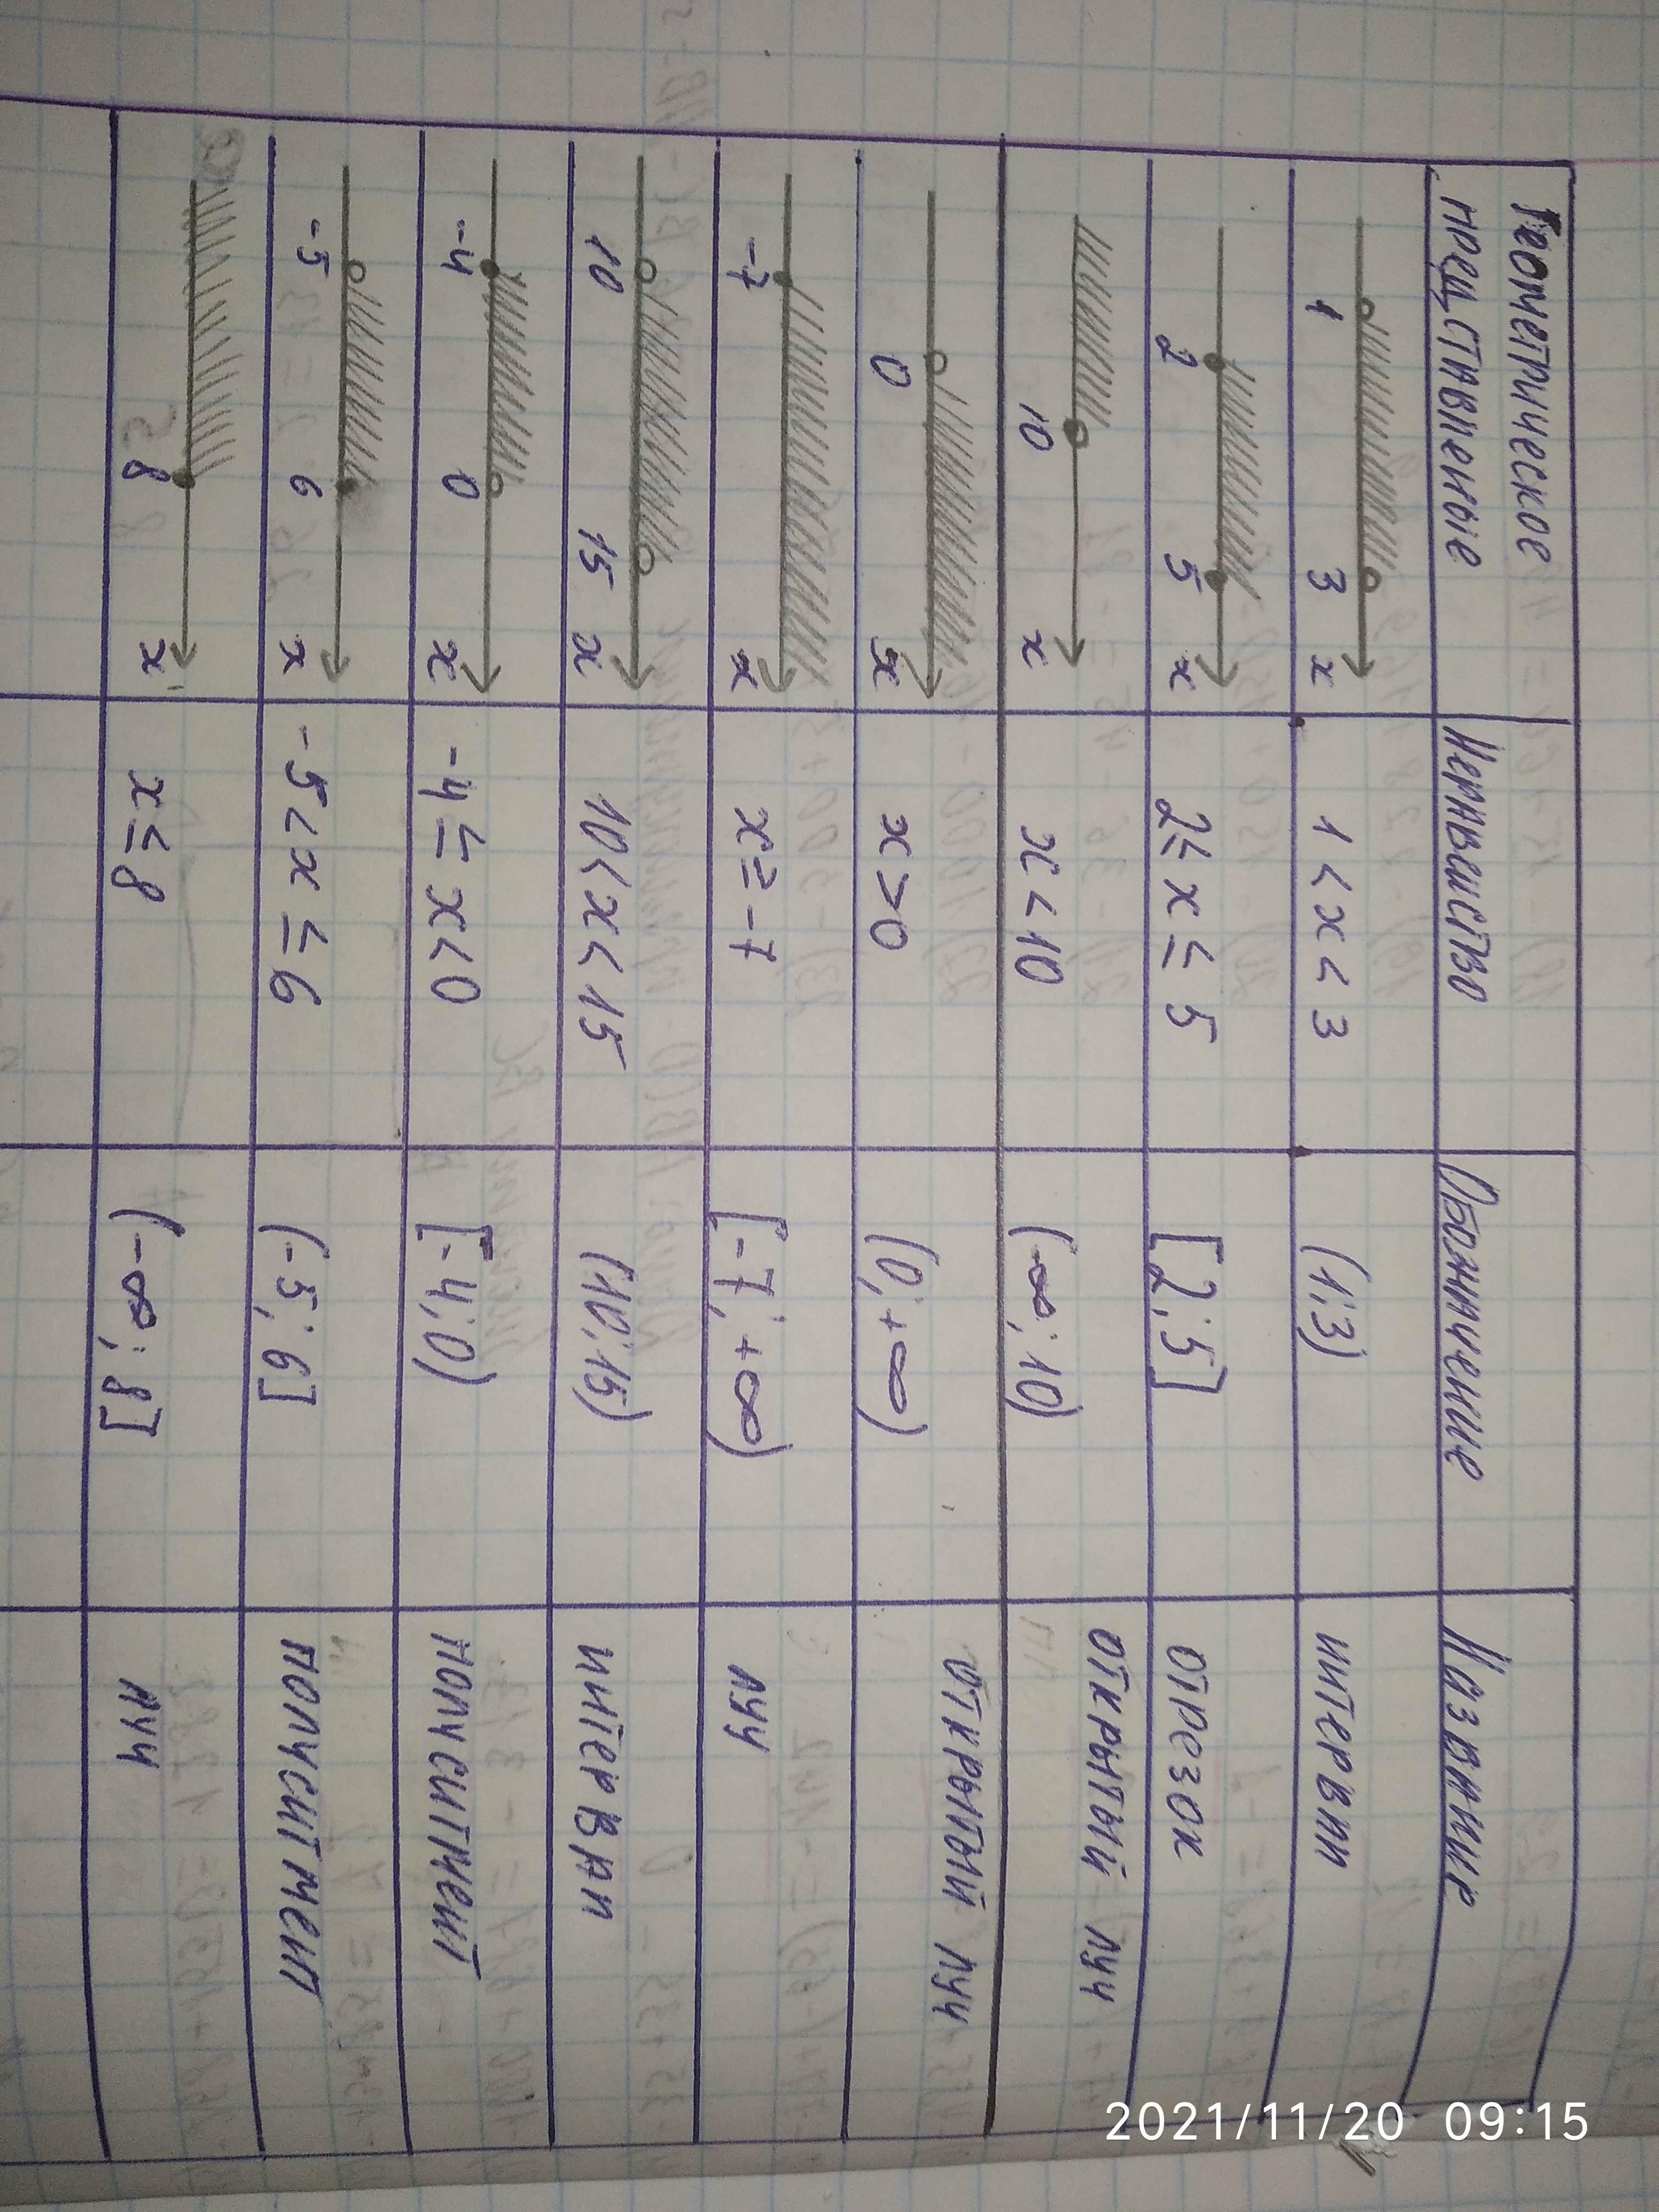 Геометрическое Неравенство Обозначение Название
представление
1 3 x 1 < x < 3 (1; 3) интервал
2 5 x 2 ≤ x ≤ 5 [2; 5] отрезок
10 x x < 10 (-∞; 10) открытый луч
0 x x > 0 (0; +∞) открытый луч
-7 x x ≥ -7 [-7; +∞) луч
10 15 x 10 < x < 15 (10; 15) интервал
-4 0 x -4 ≤ x < 0 [-4; 0) полусигмент
-5 6 x -5 < x ≤ 6 (-5; 6] полусигмент
8 x x ≤ 8 (-∞; 8] луч
2021/11/20 09:15